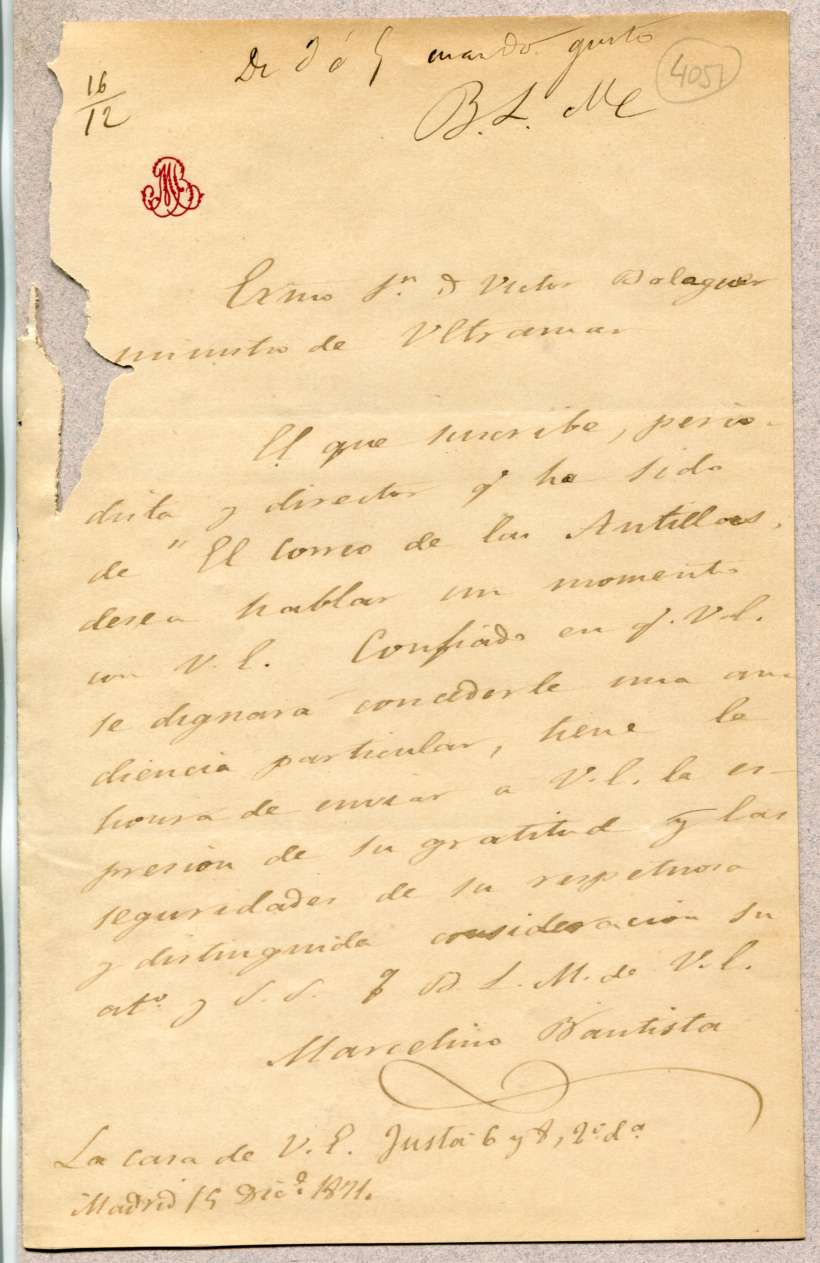 De 3 á 5 cuando guste
4051
16
12
B. L. M
MB
Exmo Sr. D Victor Balaguer
ministro de Ultramar
El que suscribe, perio-
dista y director qe ha sido
de "El Correo de las Antillas,
desea hablar un momento
con V.E. Confiado en qe. V.E.
se dignará concederle una au-
diencia particular, tiene la
honra de enviar a V.E. la es-
presion de su gratitud y las
seguridades de su respetuosa
y distinguida consideracion su
ato. y S. S. q B L. M. de V.E.
Marcelino Bautista
La casa de V. E. Justa 6 y 8, 2º da
Madrid 15 Dice. 1871.